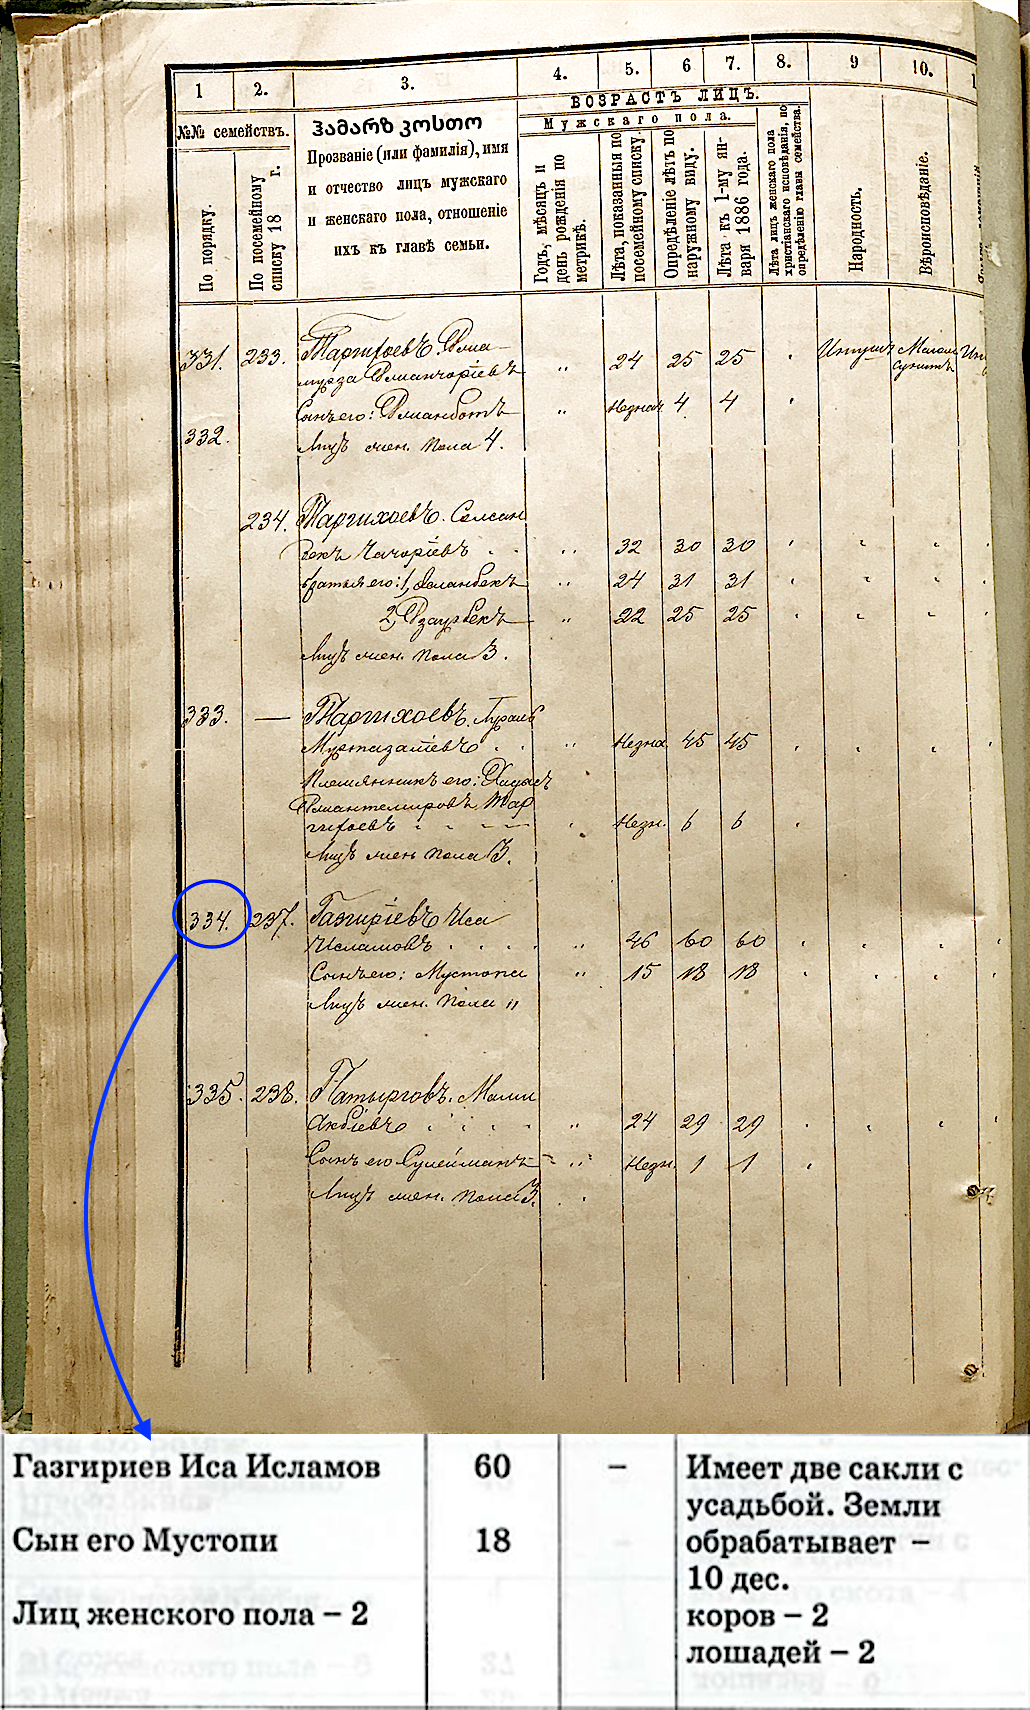 1 2. 3. 4. 5. 6 7. 8. 9 10. 1
ВОЗРАСТЪ ЛИЦЪ.
Мужскаго пола.
№№ семействъ.
По порядку.
По посемейному
списку 18 г.
ჰამარზ კოსტო
Прозваніе (или фамилія), имя
и отчество лицъ мужскаго
и женскаго пола, отношеніе
ихъ къ главѣ семьи.
Годъ, мѣсяцъ и
день рожденія по
метрикѣ.
Лѣта, показанныя по
посемейному списку.
Опредѣленіе лѣтъ по
наружному виду.
Лѣта къ 1-му ян-
варя 1886 года.
Лѣта лицъ женскаго пола
христіанскаго исповѣданія, по
опредѣленію главы семейства.
Народность.
Вѣроисповѣданіе.
331. 233. Таргихоевъ Элма-
мурза Элманчоріевъ „ 24 25 25
Сынъ его: Элманботъ „ Незнач 4 4
332. Лицъ жен. пола 4.
234. Таргихоевъ Солсан
бекъ Чачоріевъ „ 32 30 30
братья его: 1, Асланбекъ „ 24 31 31
2, Дзаурбекъ „ 22 25 25
Лицъ жен. пола 3.
333. — Таргихоевъ
Муртазаліевъ „ Незна 45 45
Племянникъ его:
Элмантемировъ Тар
гихоевъ Незн. 6 6
Лицъ жен. пола 3.
334. 237. Газгиріевъ Иса
Исламовъ „ 46 60 60
Сынъ его: Мустопи „ 15 18 18
Лицъ жен. пола „
335. 238. Патырговъ. Мали
Акбіевъ „ 24 29 29
Сынъ его Сулейманъ „ Незн. 1 1
Лицъ жен. пола 3.
Газгириев Иса Исламов 60 – Имеет две сакли с
усадьбой. Земли
Сын его Мустопи 18 обрабатывает –
10 дес.
Лиц женского пола – 2 коров – 2
лошадей – 2